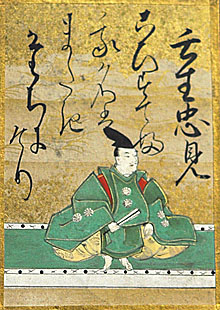 壬生忠見
こひすてふ
我か名は
またき
たちに
けり